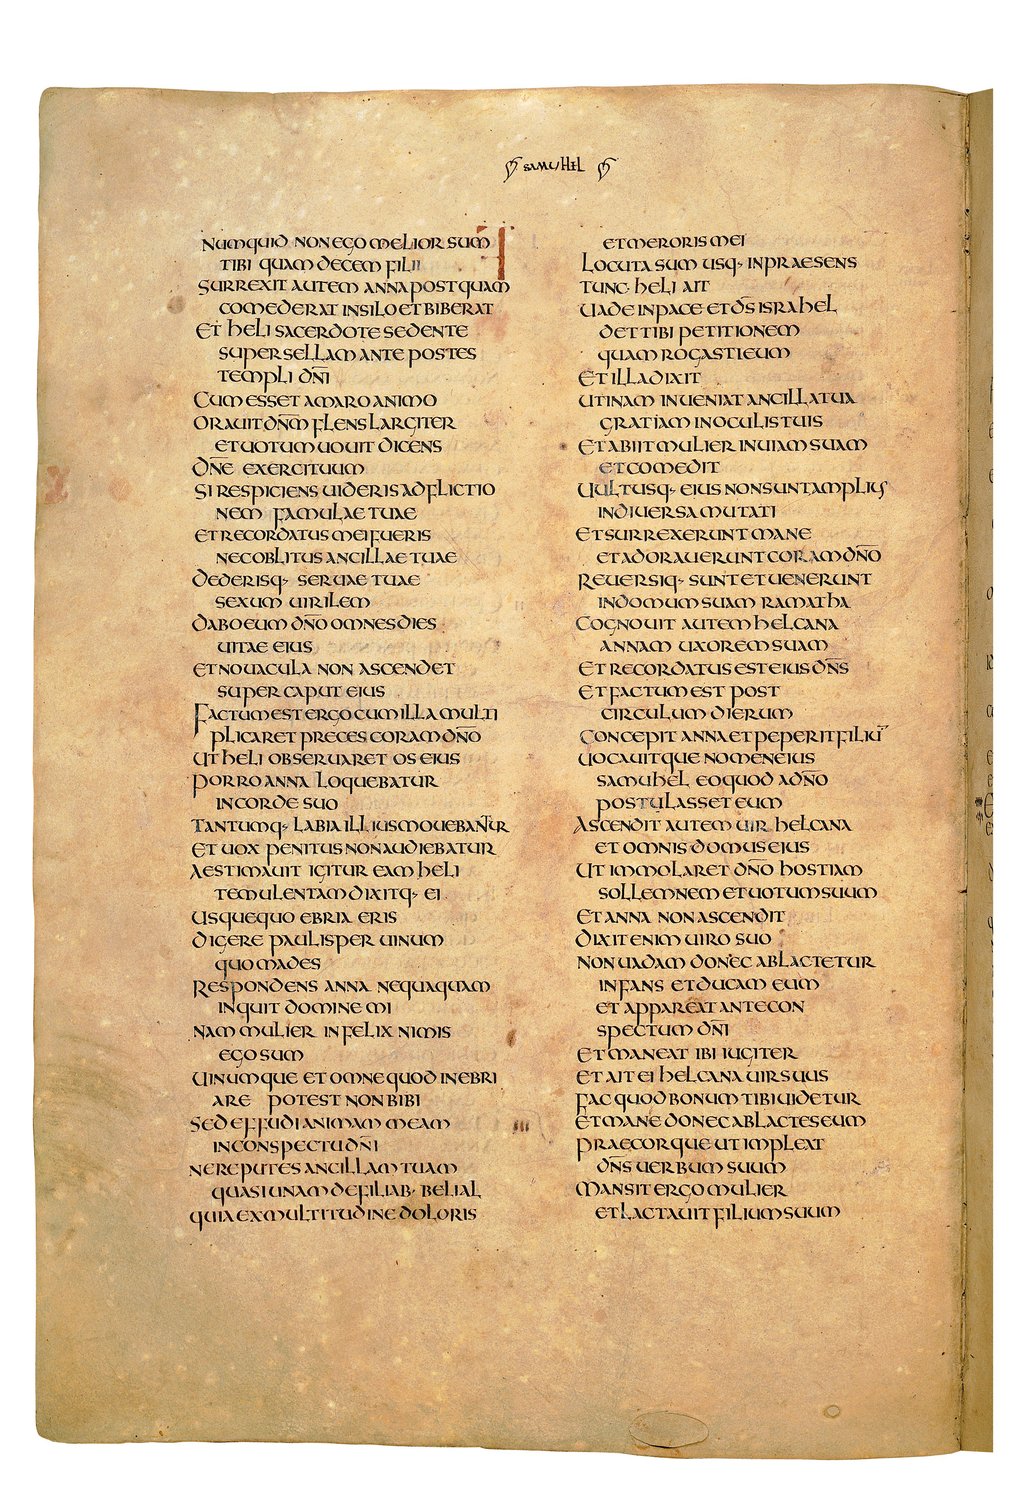 SAMUHEL
NUMQUID NON EGO MELIOR SUM
TIBI QUAM DECEM FILII
SURREXIT AUTEM ANNA POSTQUAM
COMEDERAT IN SILO ET BIBERAT
ET HELI SACERDOTE SEDENTE
SUPER SELLAM ANTE POSTES
TEMPLI DN̄I
CUM ESSET AMARO ANIMO
ORAUIT DN̄M FLENS LARGITER
ET UOTUM UOUIT DICENS
DN̄E EXERCITUUM
SI RESPICIENS UIDERIS ADFLICTIO
NEM FAMULAE TUAE
ET RECORDATUS MEI FUERIS
NEC OBLITUS ANCILLAE TUAE
DEDERISQ· SERUAE TUAE
SEXUM UIRILEM
DABO EUM DN̄O OMNES DIES
UITAE EIUS
ET NOUACULA NON ASCENDET
SUPER CAPUT EIUS
FACTUM EST ERGO CUM ILLA MULTI
PLICARET PRECES CORAM DN̄O
UT HELI OBSERUARET OS EIUS
PORRO ANNA LOQUEBATUR
IN CORDE SUO
TANTUMQ· LABIA ILLIUS MOUEBANTUR
ET UOX PENITUS NON AUDIEBATUR
AESTIMAUIT IGITUR EAM HELI
TEMULENTAM DIXITQ· EI
USQUEQUO EBRIA ERIS
DIGERE PAULISPER UINUM
QUO MADES
RESPONDENS ANNA NEQUAQUAM
INQUIT DOMINE MI
NAM MULIER INFELIX NIMIS
EGO SUM
UINUMQUE ET OMNE QUOD INEBRI
ARE POTEST NON BIBI
SED EFFUDI ANIMAM MEAM
IN CONSPECTU DN̄I
NE REPUTES ANCILLAM TUAM
QUASI UNAM DE FILIAB· BELIAL
QUIA EX MULTITUDINE DOLORIS
ET MERORIS MEI
LOCUTA SUM USQ· IN PRAESENS
TUNC HELI AIT
UADE IN PACE ET DS̄ ISRAHEL
DET TIBI PETITIONEM
QUAM ROGASTI EUM
ET ILLA DIXIT
UTINAM INUENIAT ANCILLA TUA
GRATIAM IN OCULIS TUIS
ET ABIIT MULIER IN UIAM SUAM
ET COMEDIT
UULTUSQ· EIUS NON SUNT AMPLIUS
IN DIUERSA MUTATI
ET SURREXERUNT MANE
ET ADORAUERUNT CORAM DN̄O
REUERSIQ· SUNT ET UENERUNT
IN DOMUM SUAM RAMATHA
COGNOUIT AUTEM HELCANA
ANNAM UXOREM SUAM
ET RECORDATUS EST EIUS DN̄S
ET FACTUM EST POST
CIRCULUM DIERUM
CONCEPIT ANNA ET PEPERIT FILIŪ
UOCAUITQUE NOMEN EIUS
SAMUHEL EO QUOD A DN̄O
POSTULASSET EUM
ASCENDIT AUTEM UIR HELCANA
ET OMNIS DOMUS EIUS
UT IMMOLARET DN̄O HOSTIAM
SOLLEMNEM ET UOTUM SUUM
ET ANNA NON ASCENDIT
DIXIT ENIM UIRO SUO
NON UADAM DONEC ABLACTETUR
INFANS ET DUCAM EUM
ET APPAREAT ANTE CON
SPECTUM DN̄I
ET MANEAT IBI IUGITER
ET AIT EI HELCANA UIR SUUS
FAC QUOD BONUM TIBI UIDETUR
ET MANE DONEC ABLACTES EUM
PRAECORQUE UT IMPLEAT
DN̄S UERBUM SUUM
MANSIT ERGO MULIER
ET LACTAUIT FILIUM SUUM